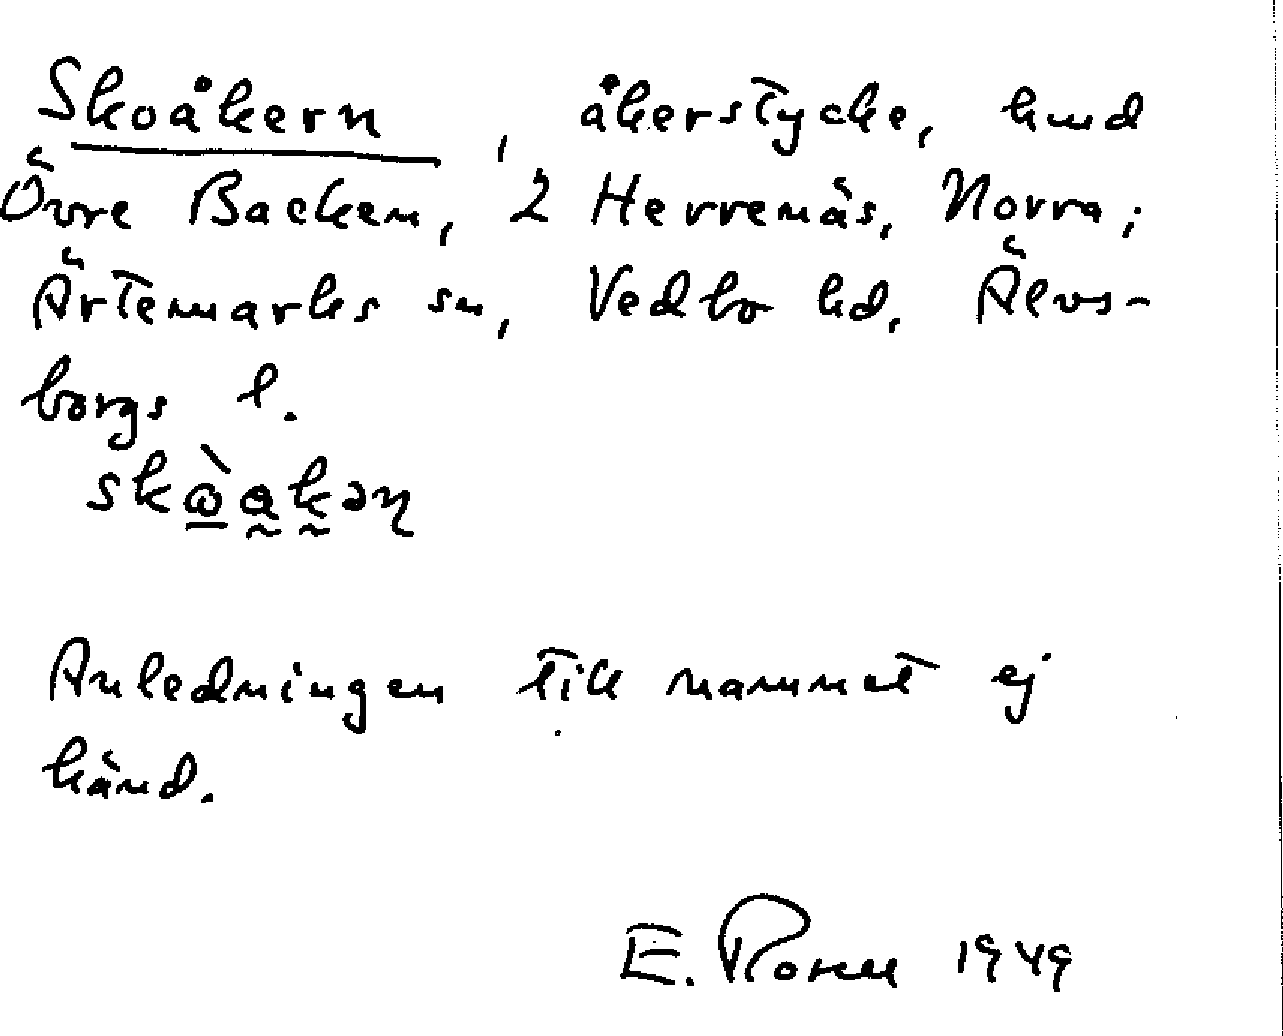 Skoåkern, åkerstycke, hmd
Övre Backen, 2 Herrenäs, Norra;
Ärtemarks sn, Vedbo hd, Älvs-
borgs l.
Anledningen till namnet ej
känd.
E. 1949